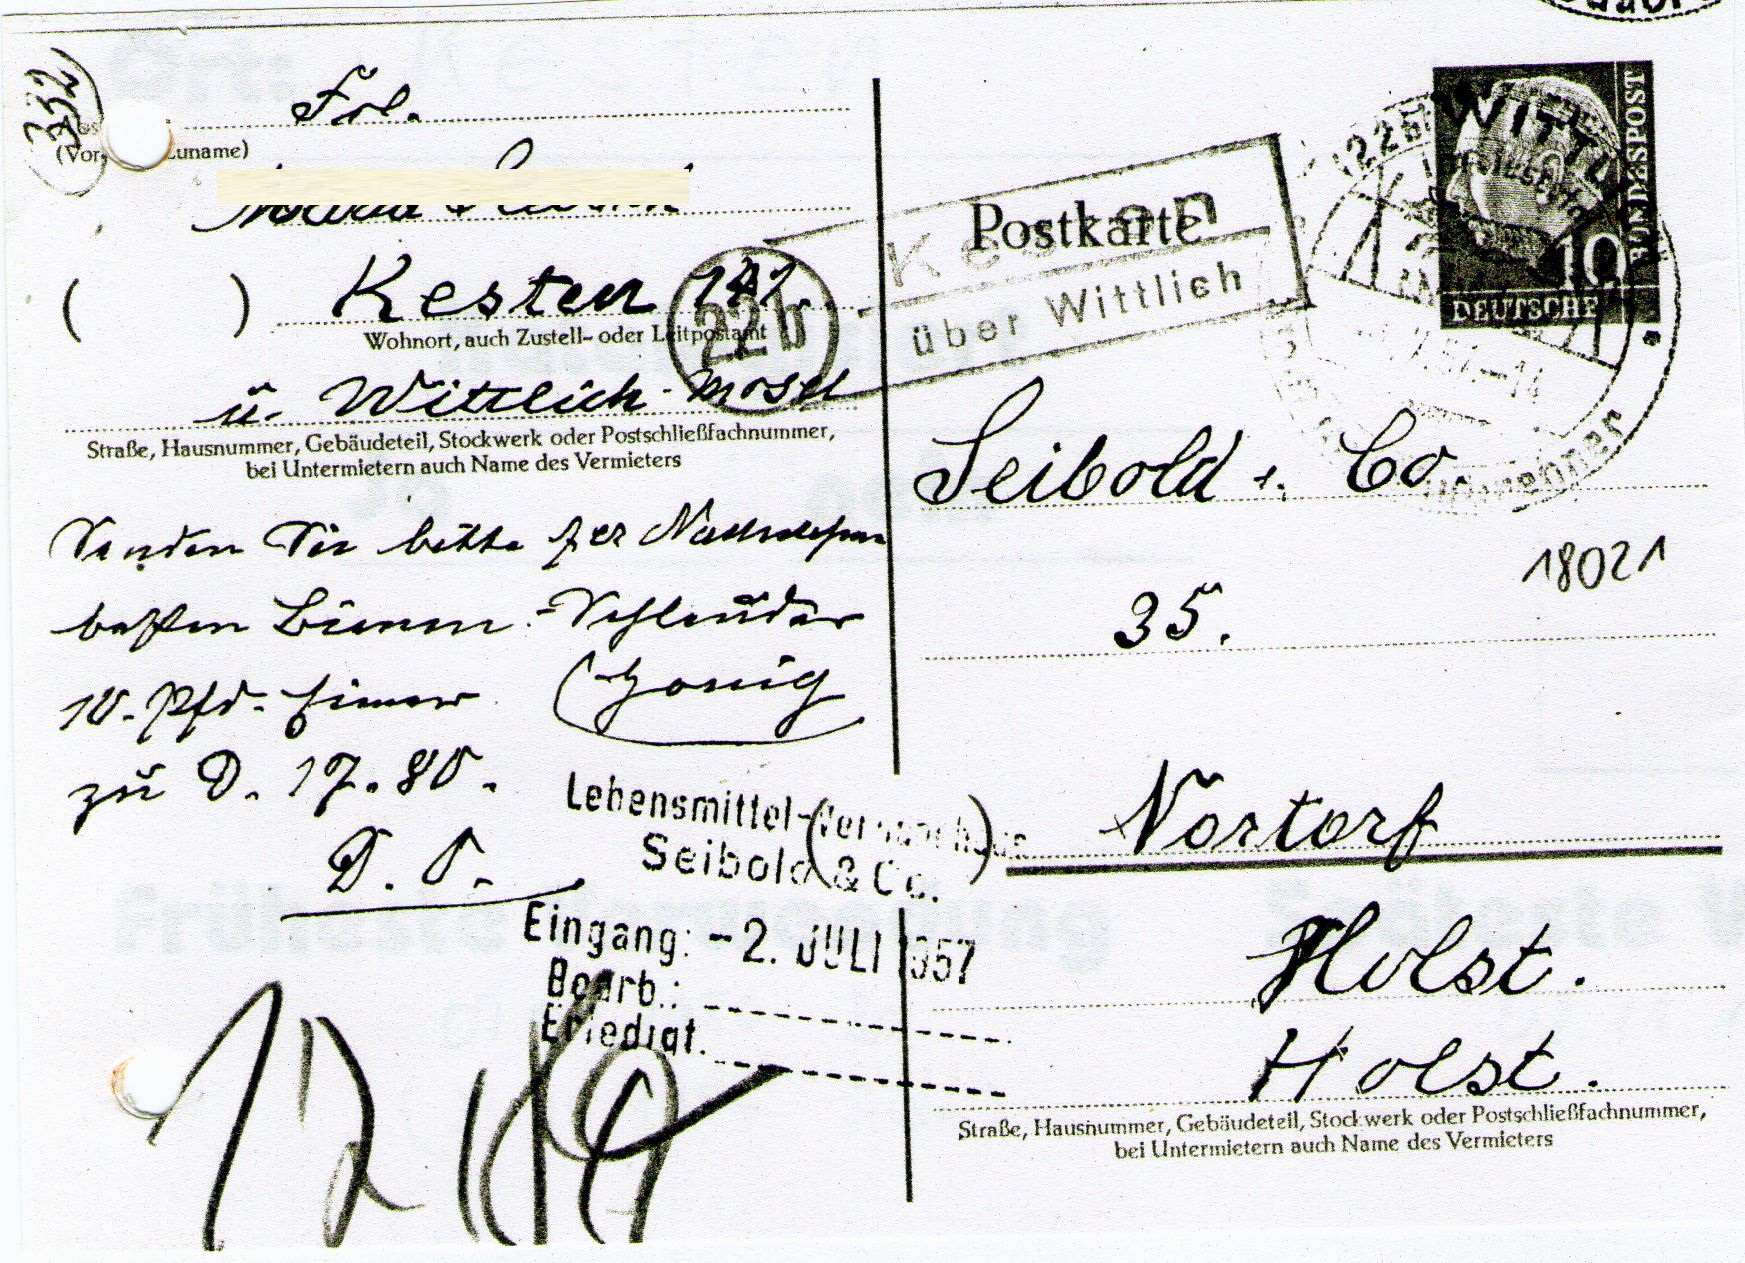 332
Frl.
(Vor- Zuname)
Kesten 141.
Wohnort, auch Zustell- oder Leitpostamt
ü. Wittlich-Mosel
Straße, Hausnummer, Gebäudeteil, Stockwerk oder Postschließfachnummer,
bei Untermietern auch Name des Vermieters
Senden Sie bitte per Nachnahme
besten Bienen-Schleuder
10-Pfd-Eimer (Honig
zu D. 17.80.
D. O.
22b
Kesten
über Wittlich
Postkarte
WITTL
DEUTSCHE
BUNDESPOST
10
Seibold u. Co.
18021
35.
Nortorf
Holst.
Holst.
Straße, Hausnummer, Gebäudeteil, Stockwerk oder Postschließfachnummer,
bei Untermietern auch Name des Vermieters
Lebensmittel-
Seibold & Co.
Eingang: -2. JULI 1957
Bearb.:
Erledigt.